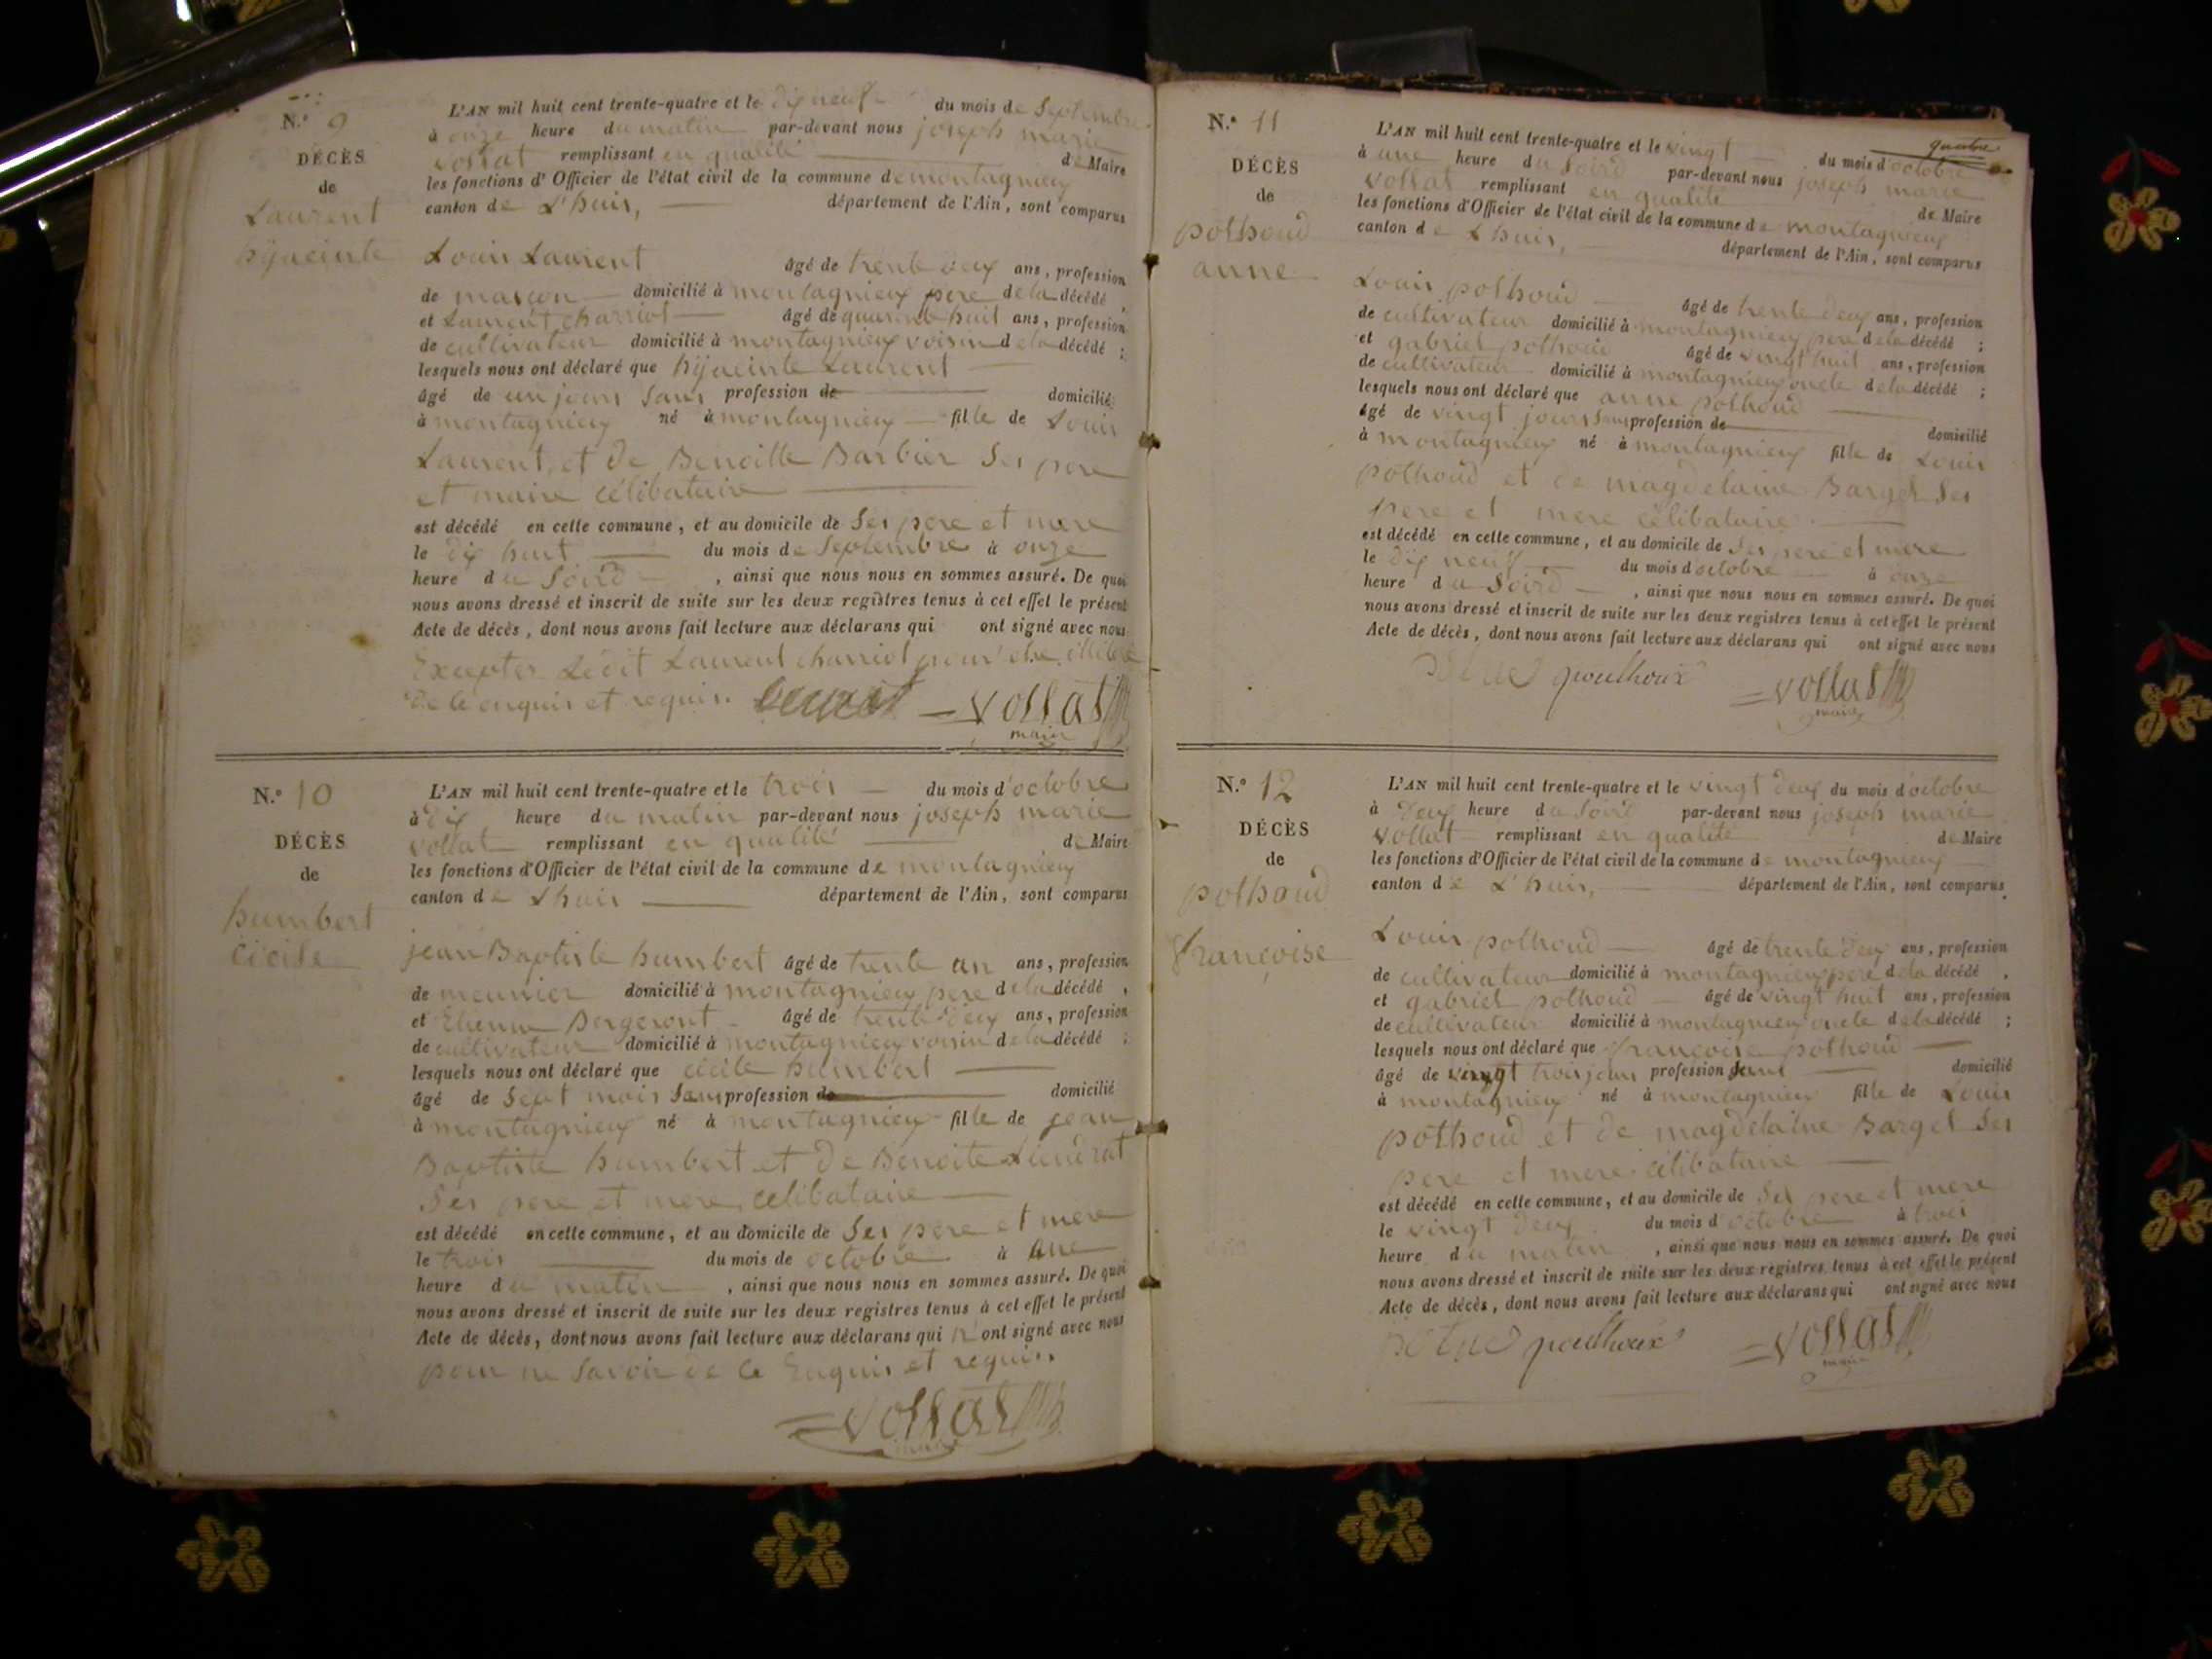 N.º 9
DÉCÈS
de
Laurent
hijacinte
L'AN mil huit cent trente-quatre et le dix neuf du mois de Septembre
à onze heure du matin par-devant nous joseph marie
vollat remplissant en qualité de Maire
les fonctions d'Officier de l'état civil de la commune de montagnieux
canton de L'huis, département de l'Ain, sont comparus
Louis Laurent âgé de trente deux ans, profession
de mascon domicilié à montagnieux pere de la décédé,
et Laurent charriot âgé de quarente huit ans, profession
de cultivateur domicilié à montagnieux voisin de la décédé ;
lesquels nous ont déclaré que hijacinte Laurent
âgé de un jours sans profession de domicilié
à montagnieux né à montagnieux fille de Louis
Laurent, et de Benoitte Barbier ses pere
et maire célibataire
est décédé en cette commune, et au domicile de ses pere et mere
le dix huit du mois de Septembre à onze
heure du soird, ainsi que nous nous en sommes assuré. De quoi
nous avons dressé et inscrit de suite sur les deux registres tenus à cet effet le présent
Acte de décès, dont nous avons fait lecture aux déclarans qui ont signé avec nous
Excepter Ledit Laurent charriot pour etre illitere
de le enquis et requis. vollat
maire
N.º 10
DÉCÈS
de
humbert
cicile
L'AN mil huit cent trente-quatre et le trois du mois d'octobre
à dix heure du matin par-devant nous joseph marie
vollat remplissant en qualité de Maire
les fonctions d'Officier de l'état civil de la commune de montagnieux
canton de Lhuis département de l'Ain, sont comparus
jean Baptiste humbert âgé de trente un ans, profession
de meunier domicilié à montagnieux pere de la décédé,
et Etienne Bergeront âgé de trente deux ans, profession
de cultivateur domicilié à montagnieux voisin de la décédé ;
lesquels nous ont déclaré que cicile humbert
âgé de Sept mois sans profession de domicilié
à montagnieux né à montagnieux fille de jean
Baptiste humbert et de Benoite
ses pere et mere, celibataire
est décédé en cette commune, et au domicile de ses pere et mere
le trois du mois de octobre à une
heure du matin, ainsi que nous nous en sommes assuré. De quoi
nous avons dressé et inscrit de suite sur les deux registres tenus à cet effet le présent
Acte de décès, dont nous avons fait lecture aux déclarans qui n'ont signé avec nous
pour ne savoir de ce Enquis et requis.
vollat
maire
quatre
N.º 11
DÉCÈS
de
pothoud
anne
L'AN mil huit cent trente-quatre et le vingt du mois d'octobre
à une heure du soird par-devant nous joseph marie
vollat remplissant en qualité de Maire
les fonctions d'Officier de l'état civil de la commune de montagnieux
canton de Lhuis, département de l'Ain, sont comparus
Louis pothoud âgé de trente deux ans, profession
de cultivateur domicilié à montagnieux pere de la décédé ;
et gabriel pothoud âgé de vingt huit ans, profession
de cultivateur domicilié à montagnieux oncle de la décédé ;
lesquels nous ont déclaré que anne pothoud
âgé de vingt jours sans profession de domicilié
à montagnieux né à montagnieux fille de Louis
pothoud et de magdelaine Barget ses
pere et mere célibataire.
est décédé en cette commune, et au domicile de ses pere et mere
le dix neuf du mois d'octobre à onze
heure du soird, ainsi que nous nous en sommes assuré. De quoi
nous avons dressé et inscrit de suite sur les deux registres tenus à cet effet le présent
Acte de décès, dont nous avons fait lecture aux déclarans qui ont signé avec nous
pouthoux vollat
maire
N.º 12
DÉCÈS
de
pothoud
françoise
L'AN mil huit cent trente-quatre et le vingt deux du mois d'octobre
à deux heure du soird par-devant nous joseph marie
vollat remplissant en qualité de Maire
les fonctions d'Officier de l'état civil de la commune de montagnieux
canton de L'huis, département de l'Ain, sont comparus
Louis pothoud âgé de trente deux ans, profession
de cultivateur domicilié à montagnieux pere de la décédé,
et gabriel pothoud âgé de vingt huit ans, profession
de cultivateur domicilié à montagnieux oncle de la décédé ;
lesquels nous ont déclaré que françoise pothoud
âgé de vingt trois jours profession sans domicilié
à montagnieux né à montagnieux fille de Louis
pothoud et de magdelaine Barget ses
pere et mere célibataire
est décédé en cette commune, et au domicile de ses pere et mere
le vingt deux du mois d'octobre à trois
heure du matin, ainsi que nous nous en sommes assuré. De quoi
nous avons dressé et inscrit de suite sur les deux registres tenus à cet effet le présent
Acte de décès, dont nous avons fait lecture aux déclarans qui ont signé avec nous
pouthoux vollat
maire